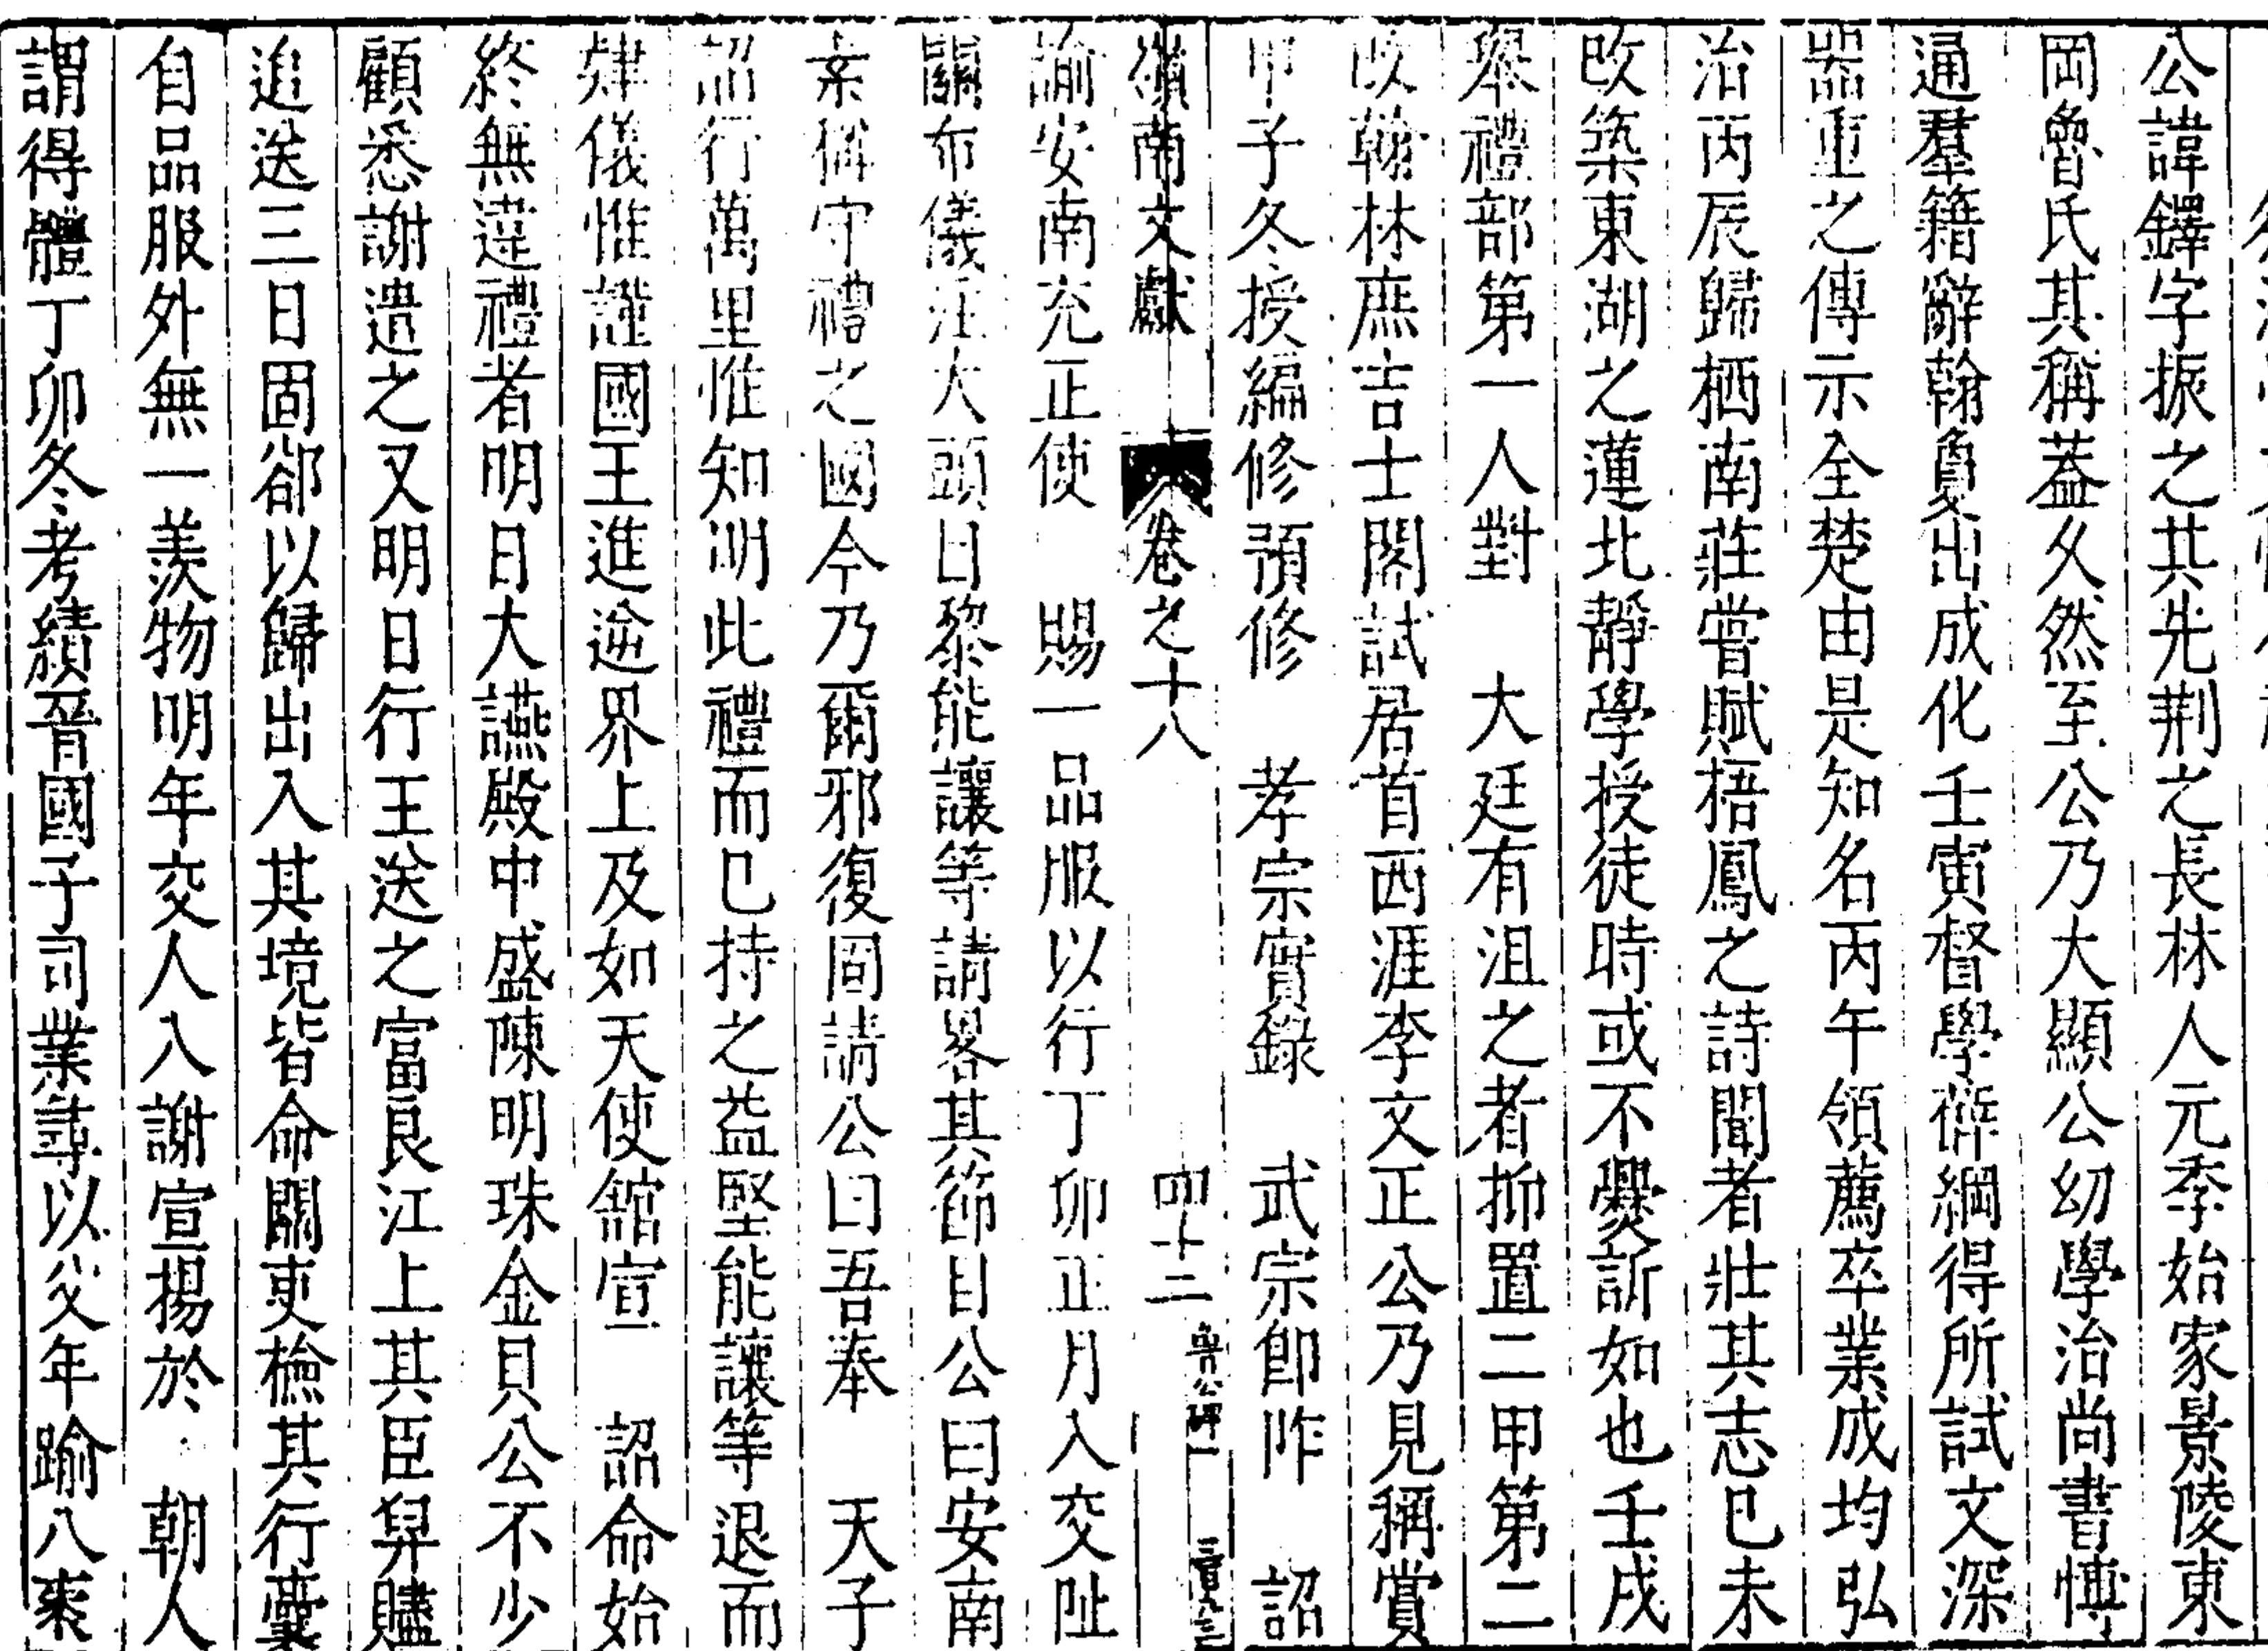 公諱鐸字振之其先荆之長林人元季始家景陵東
岡魯氏其稱蓋久然至公乃大顯公幼學治尚書愽
通羣籍辭翰敻出成化壬寅督學薛綱得所試文深
器重之傳示全楚由是知名丙午領薦卒業成均弘
治丙辰歸栖南莊嘗賦梧鳳之詩聞者壯其志巳未
改築東湖之蓮北靜學授徒時或不爨訢如也壬戌
舉禮部第一人對　大廷有沮之者抑置二甲第二
改翰林庶吉士閣試居首西涯李文正公乃見稱賞
甲子冬授編修預修　孝宗實錄　武宗卽阼　詔
嶺南文獻　卷之十八　四十二
諭安南充正使　賜一品服以行丁卯正月入交阯
關布儀注大頭目黎能讓等請畧其節目公曰安南
素稱守禮之國今乃爾邪復固請公曰吾奉　天子
詔行萬里惟知明此禮而巳持之益堅能讓等退而
肄儀惟謹國王進逆界上及如天使舘宣　詔命始
終無違禮者明日大讌殿中盛陳明珠金貝公不少
顧悉謝遣之又明日行王送之富良江上其臣舁贐
追送三日固郤以歸出入其境皆命關吏檢其行囊
自品服外無一羨物明年交人入謝宣揚於　朝人
謂得體丁卯冬考績晉國子司業尋以父年踰八袠